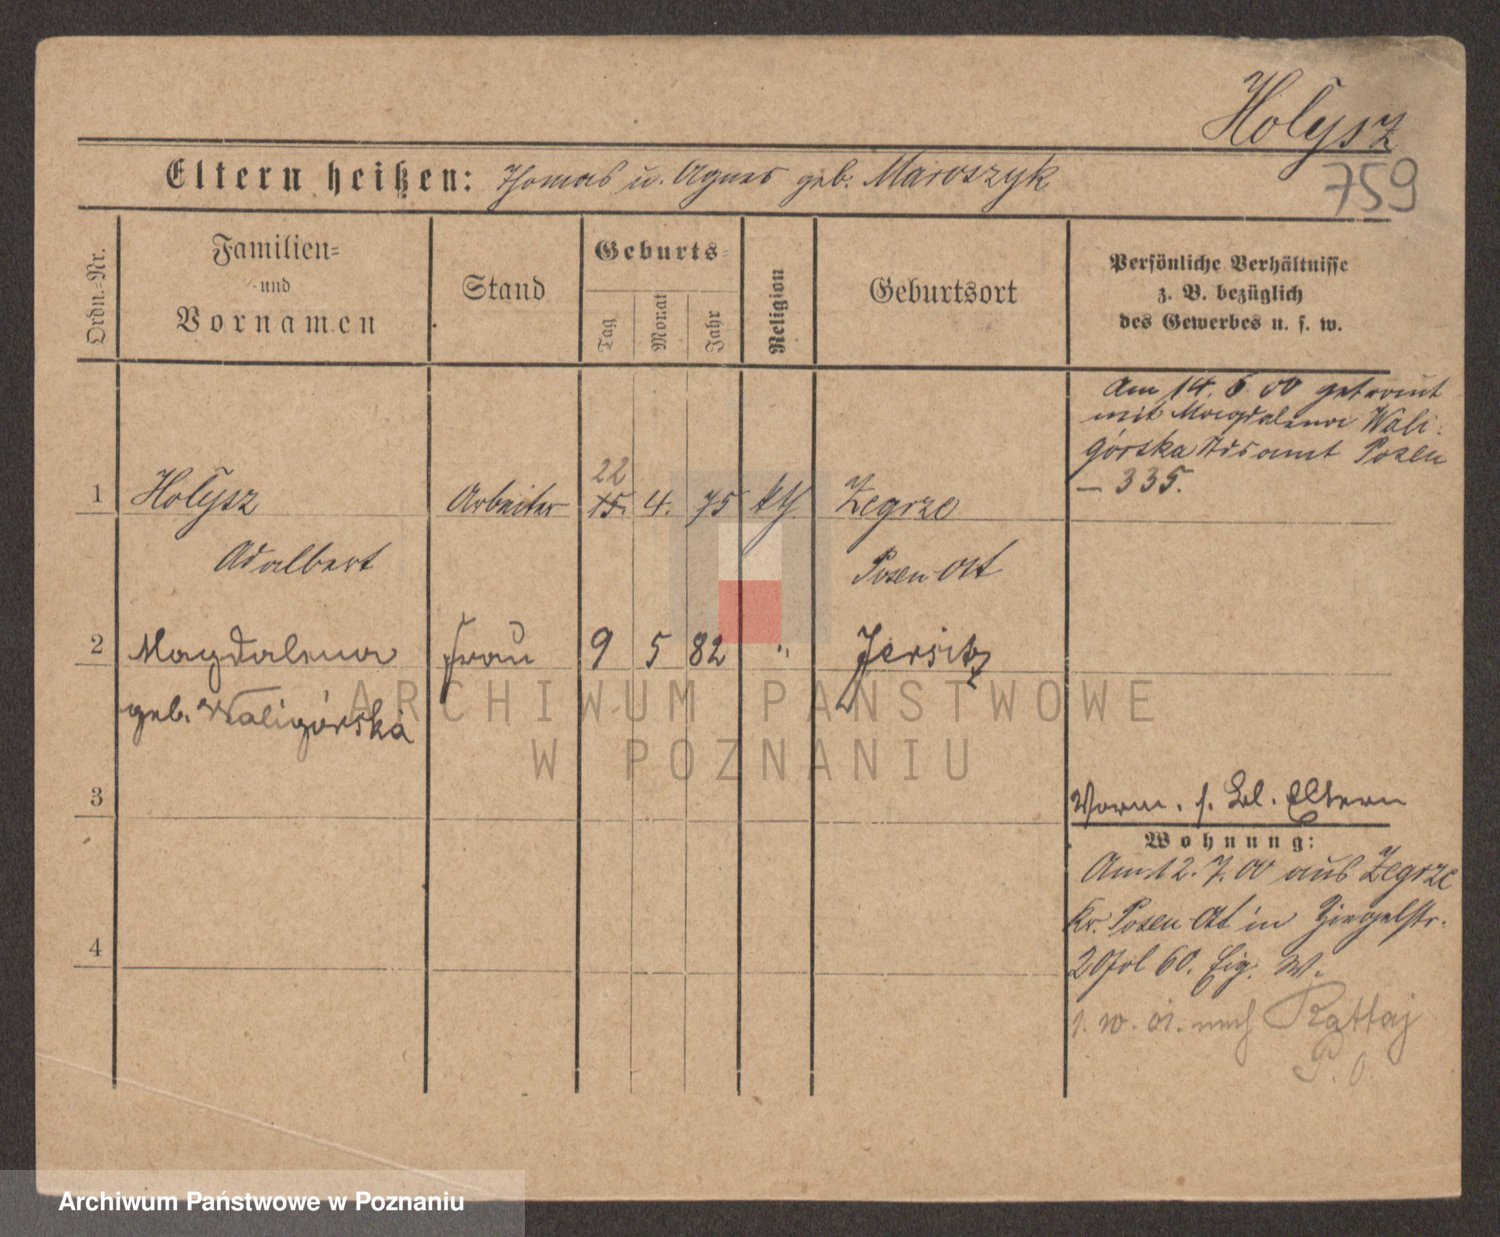 Holysz
759
Eltern heißen: Thomas u. Agnes geb. Maroszyk
Ordn.-Nr.
Familien-
und
Vornamen
Stand
Geburts-
Tag
Monat
Jahr
Religion
Geburtsort
Persönliche Verhältnisse
z. B. bezüglich
des Gewerbes u. s. w.
Am 14. 6 00 getraut
mit Magdalena Wali-
górska Posen
— 335.
22
1 Holysz Arbeiter 15. 4. 75 kth. Zegrze
Adalbert Posen Ost
2 Magdalena Frau 9 5 82 " Jersitz
geb. Waligórska
3
4
Vorm. s. Bl. Eltern
Wohnung:
Am 12. 7. 00 aus Zegrze
Kr. Posen Ost in Ziegelstr.
60. Eig. W.
nach Rattaj
P. O.
ARCHIWUM PAŃSTWOWE
W POZNANIU
Archiwum Państwowe w Poznaniu